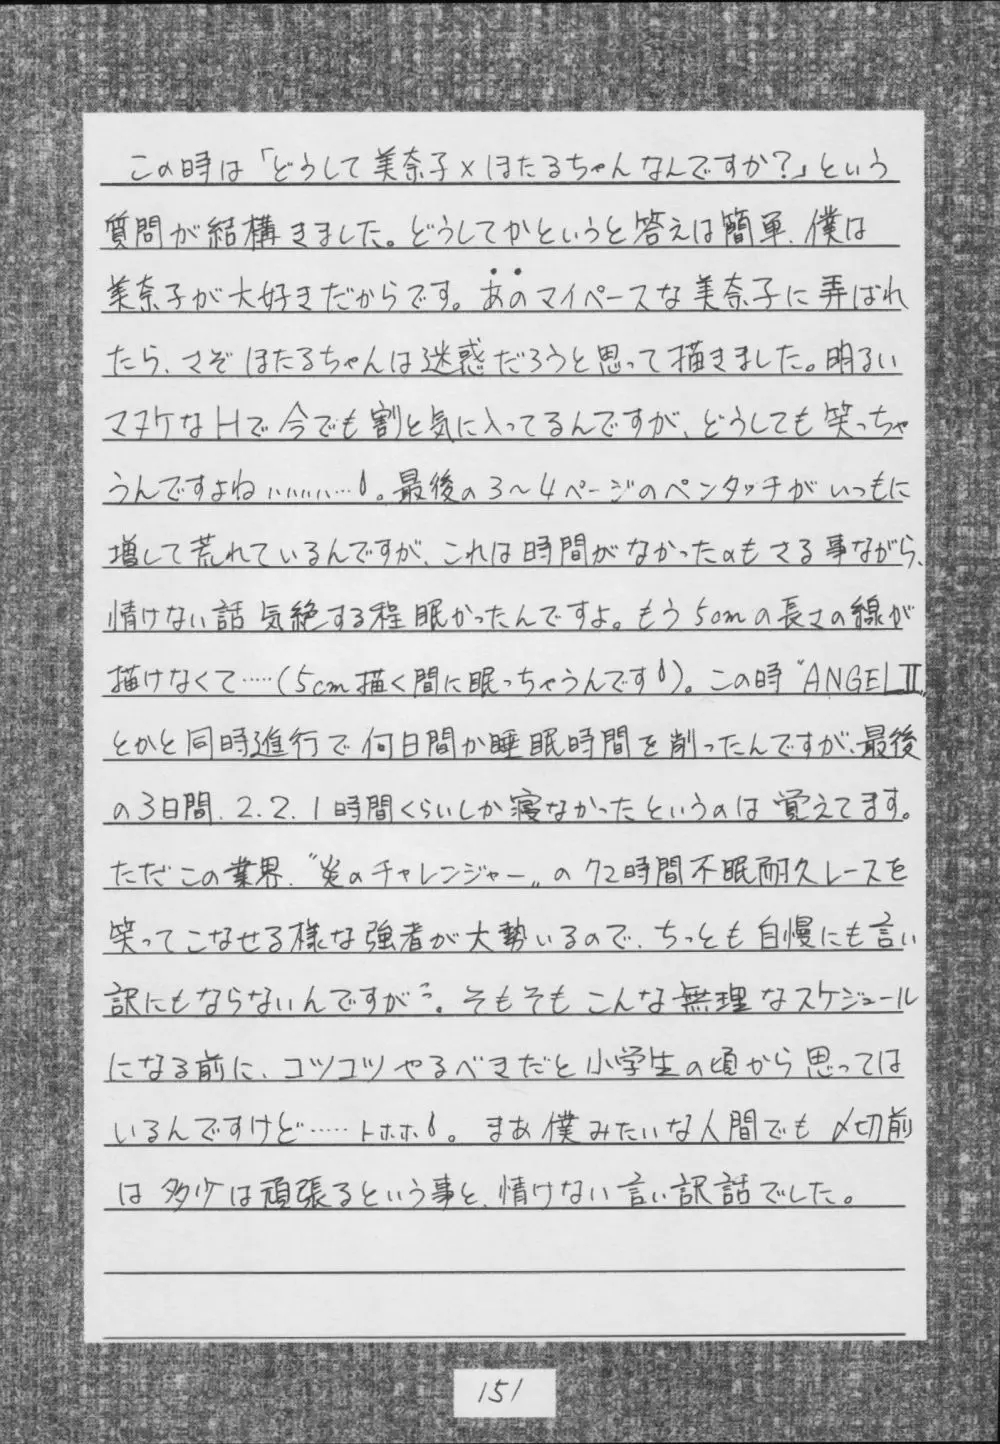 この時は「どうして美奈子×ほたるちゃんなんですか?」という
質問が結構きました。どうしてかというと答えは簡単、僕は
美奈子が大好きだからです。あのマイペースな美奈子に弄ばれ
たら、さぞほたるちゃんは迷惑だろうと思って描きました。明るい
マヌケなHで今でも割と気に入ってるんですが、どうしても笑っちゃ
うんですよねぃぃぃぃぃ…。最後の3〜4ページのペンタッチがいつもに
増して荒れているんですが、これは時間がなかったのもさる事ながら、
情けない話気絶する程眠かったんですよ。もう5cmの長さの線が
描けなくて……(5cm描く間に眠っちゃうんです)。この時〝ANGELⅡ〟
とかと同時進行で何日間か睡眠時間を削ったんですが、最後
の3日間、2、2、1時間くらいしか寝なかったというのは覚えてます。
ただこの業界、〝炎のチャレンジャー〟の72時間不眠耐久レースを
笑ってこなせる様な強者が大勢いるので、ちっとも自慢にも言い
訳にもならないんですが。そもそもこんな無理なスケジュール
になる前に、コツコツやるべきだと小学生の頃から思っては
いるんですけど……トホホ。まあ僕みたいな人間でも〆切前
は多少は頑張るという事と、情けない言い訳話でした。
151